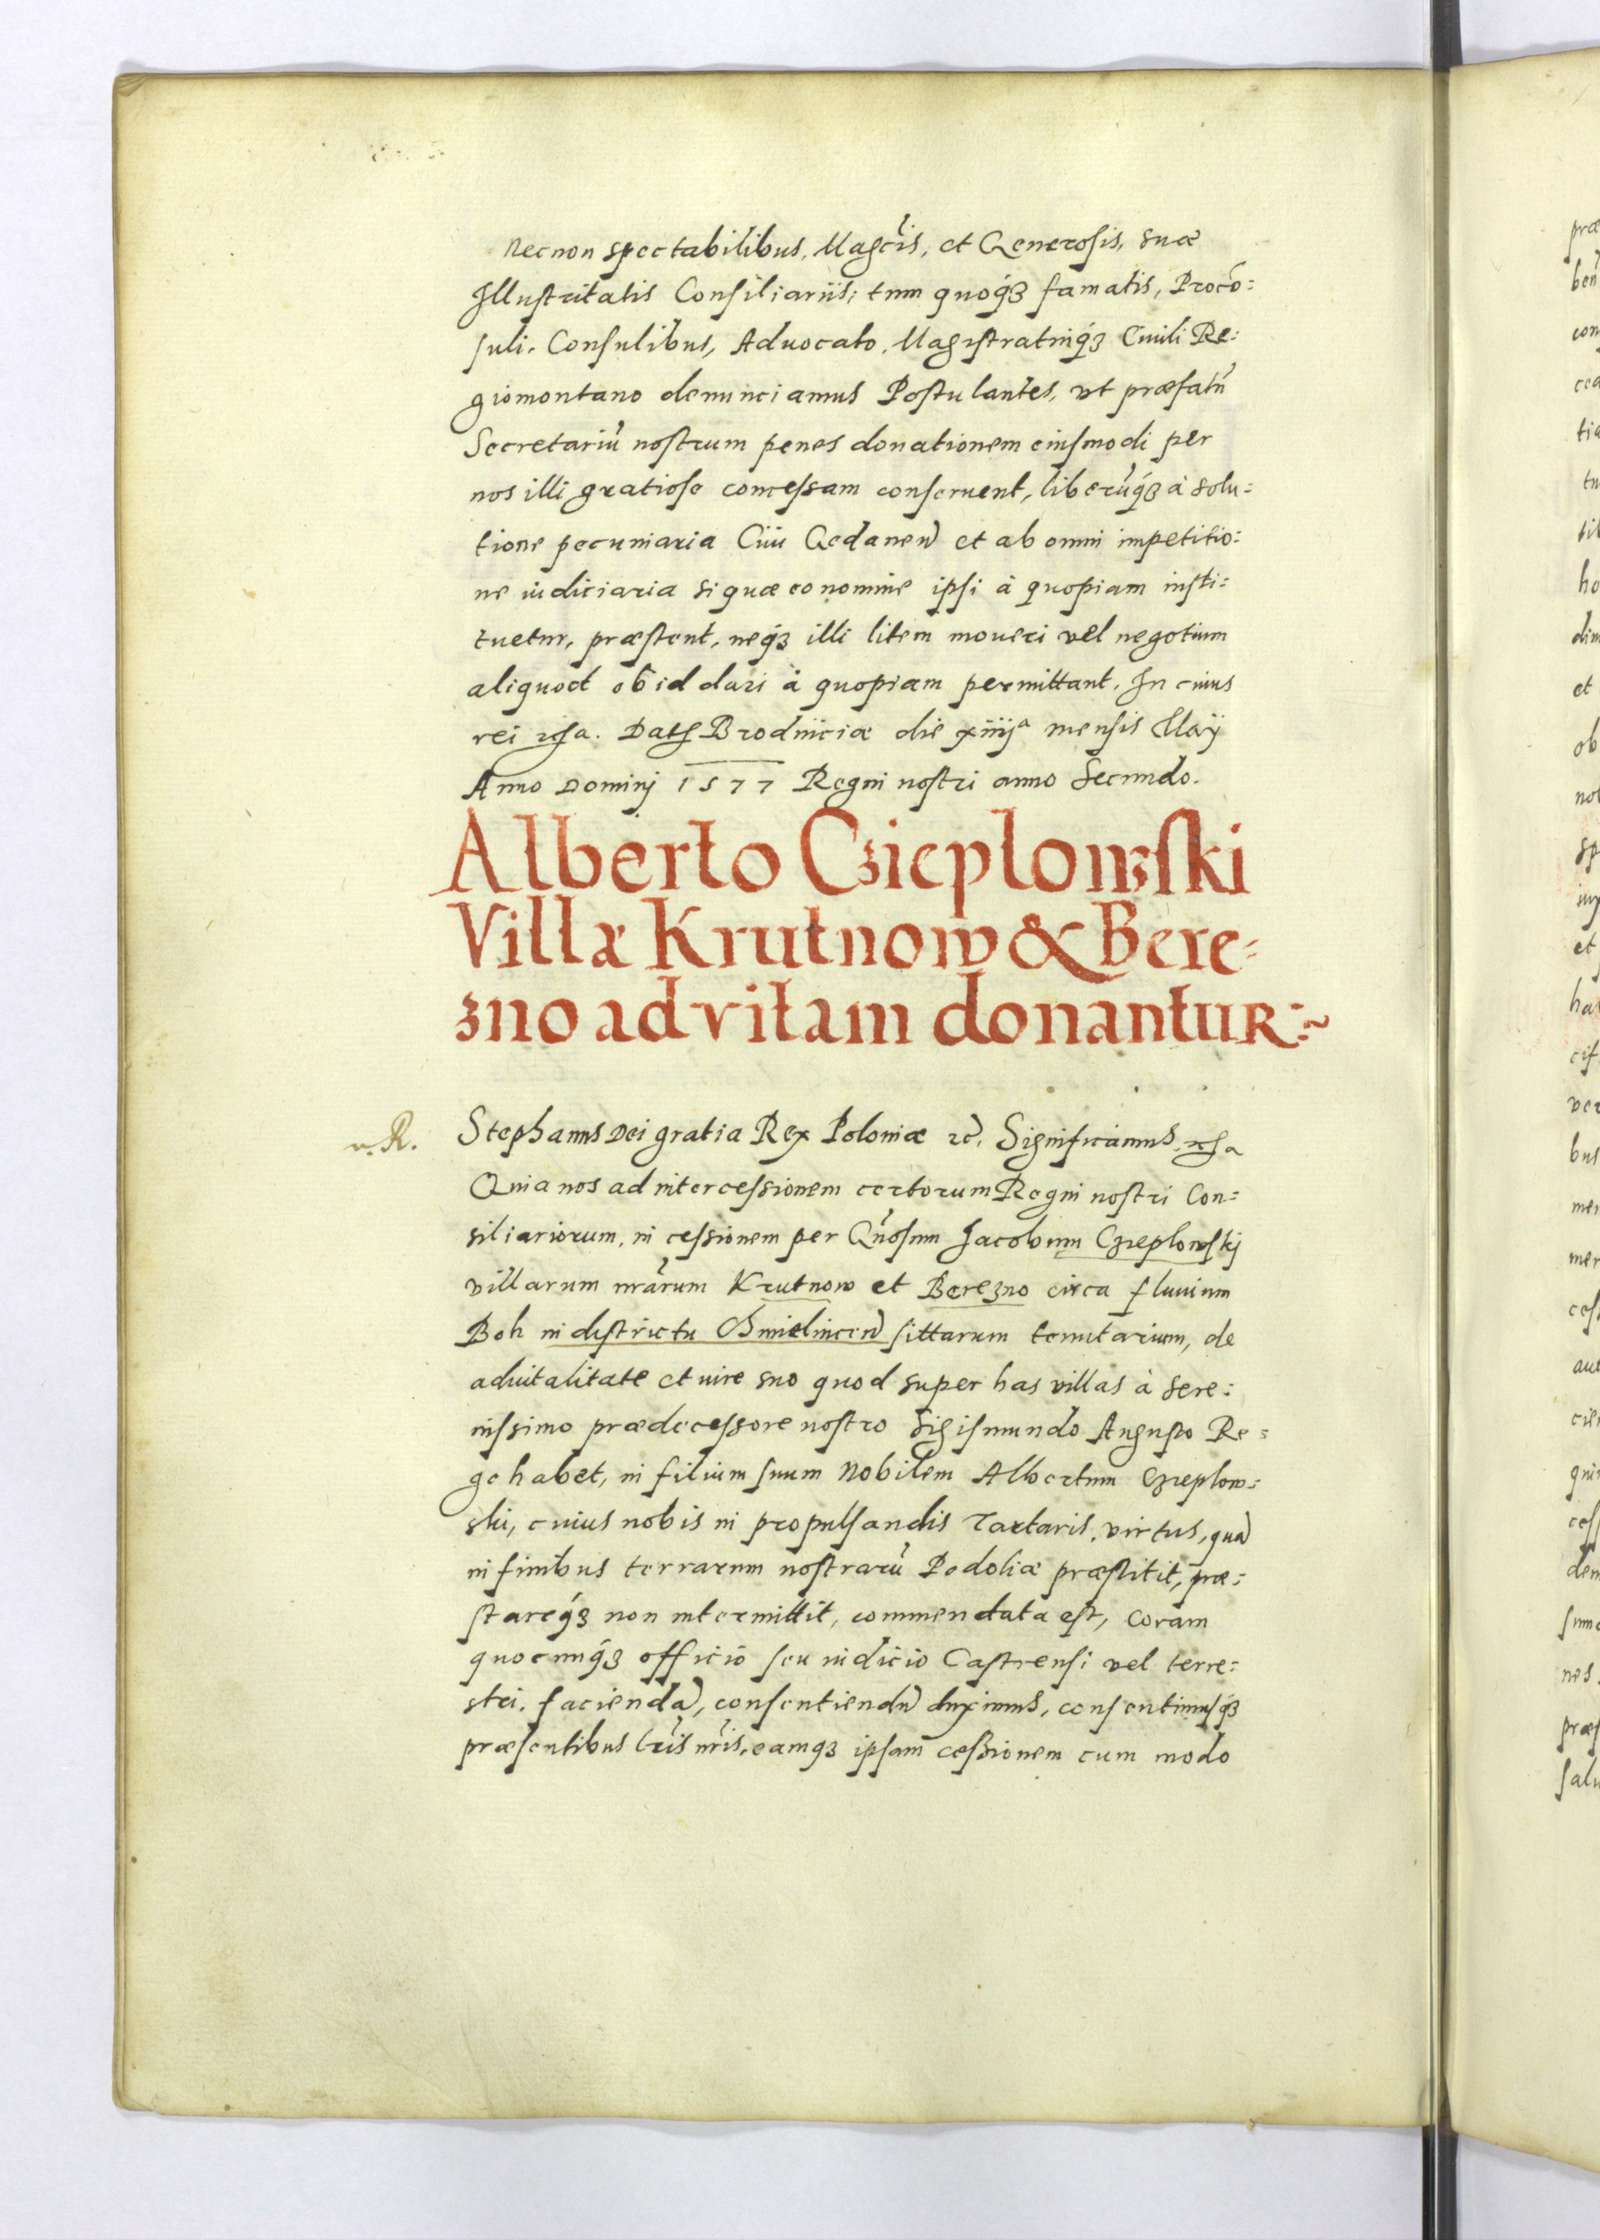 Necnon spectabilibus, Magcis, et Generosis, suæ
Illustritatis Consiliariis; tum quoq́ȝ famatis, Procõ:
suli. Consulibus, Aduocato, Magistratuiq́ȝ Ciuili Re:
giomontano denunciamus Postulantes, vt præfatũ
Secretariũ nostrum penes donationem eiusmodi per
nos illi gratiose concessam conseruent, liberũq́ȝ à solu:
tione pecuniaria Ciui Gedaneñ et ab omni impetitio:
ne iudiciaria si quæ eo nomine ipsi à quopiam insti:
tuetur, præstent, neq́ȝ illi litem moueri vel negotium
aliquod ob id dari à quopiam permittant. In cuius
rei Dat Brodniciæ die xiiijᵃ mensis Maÿ
Anno Dominj 1577 Regni nostri anno Secundo.
Alberto Czieplowski
Villæ Krutnow & Bere=
zno ad vitam donantur:~
R. Stephanus Dei gratia Rex Poloniæ ꝛc̃, Significamus
Quia nos ad intercessionem certorum Regni nostri Con=
siliariorum, in cessionem per Gñosum Jacobum Czieplowskj
villarum nr̃arum Krutnow et Berezno circa fluuium
Boh in districtu Chmielniceñ sittarum tenutarium, de
aduitalitate et iure suo quod super has villas à Sere:
nissimo prædecessore nostro Sigismundo Augusto Re=
ge habet, in filium suum Nobilem Albertum Czieplow:
ski, cuius nobis in propulsandis Tartaris, virtus, quã
in finibus terrarum nostrarũ Podoliæ præstitit, præ:
stareq́ȝ non intermittit, commendata est, coram
quocunq́ȝ officio seu iudicio Castrensi vel terre:
stri, faciendã, consentiendũ duximus, consentimusq́ȝ
præsentibus lr̃is nr̃is, eamqȝ ipsam cessionem cum modo